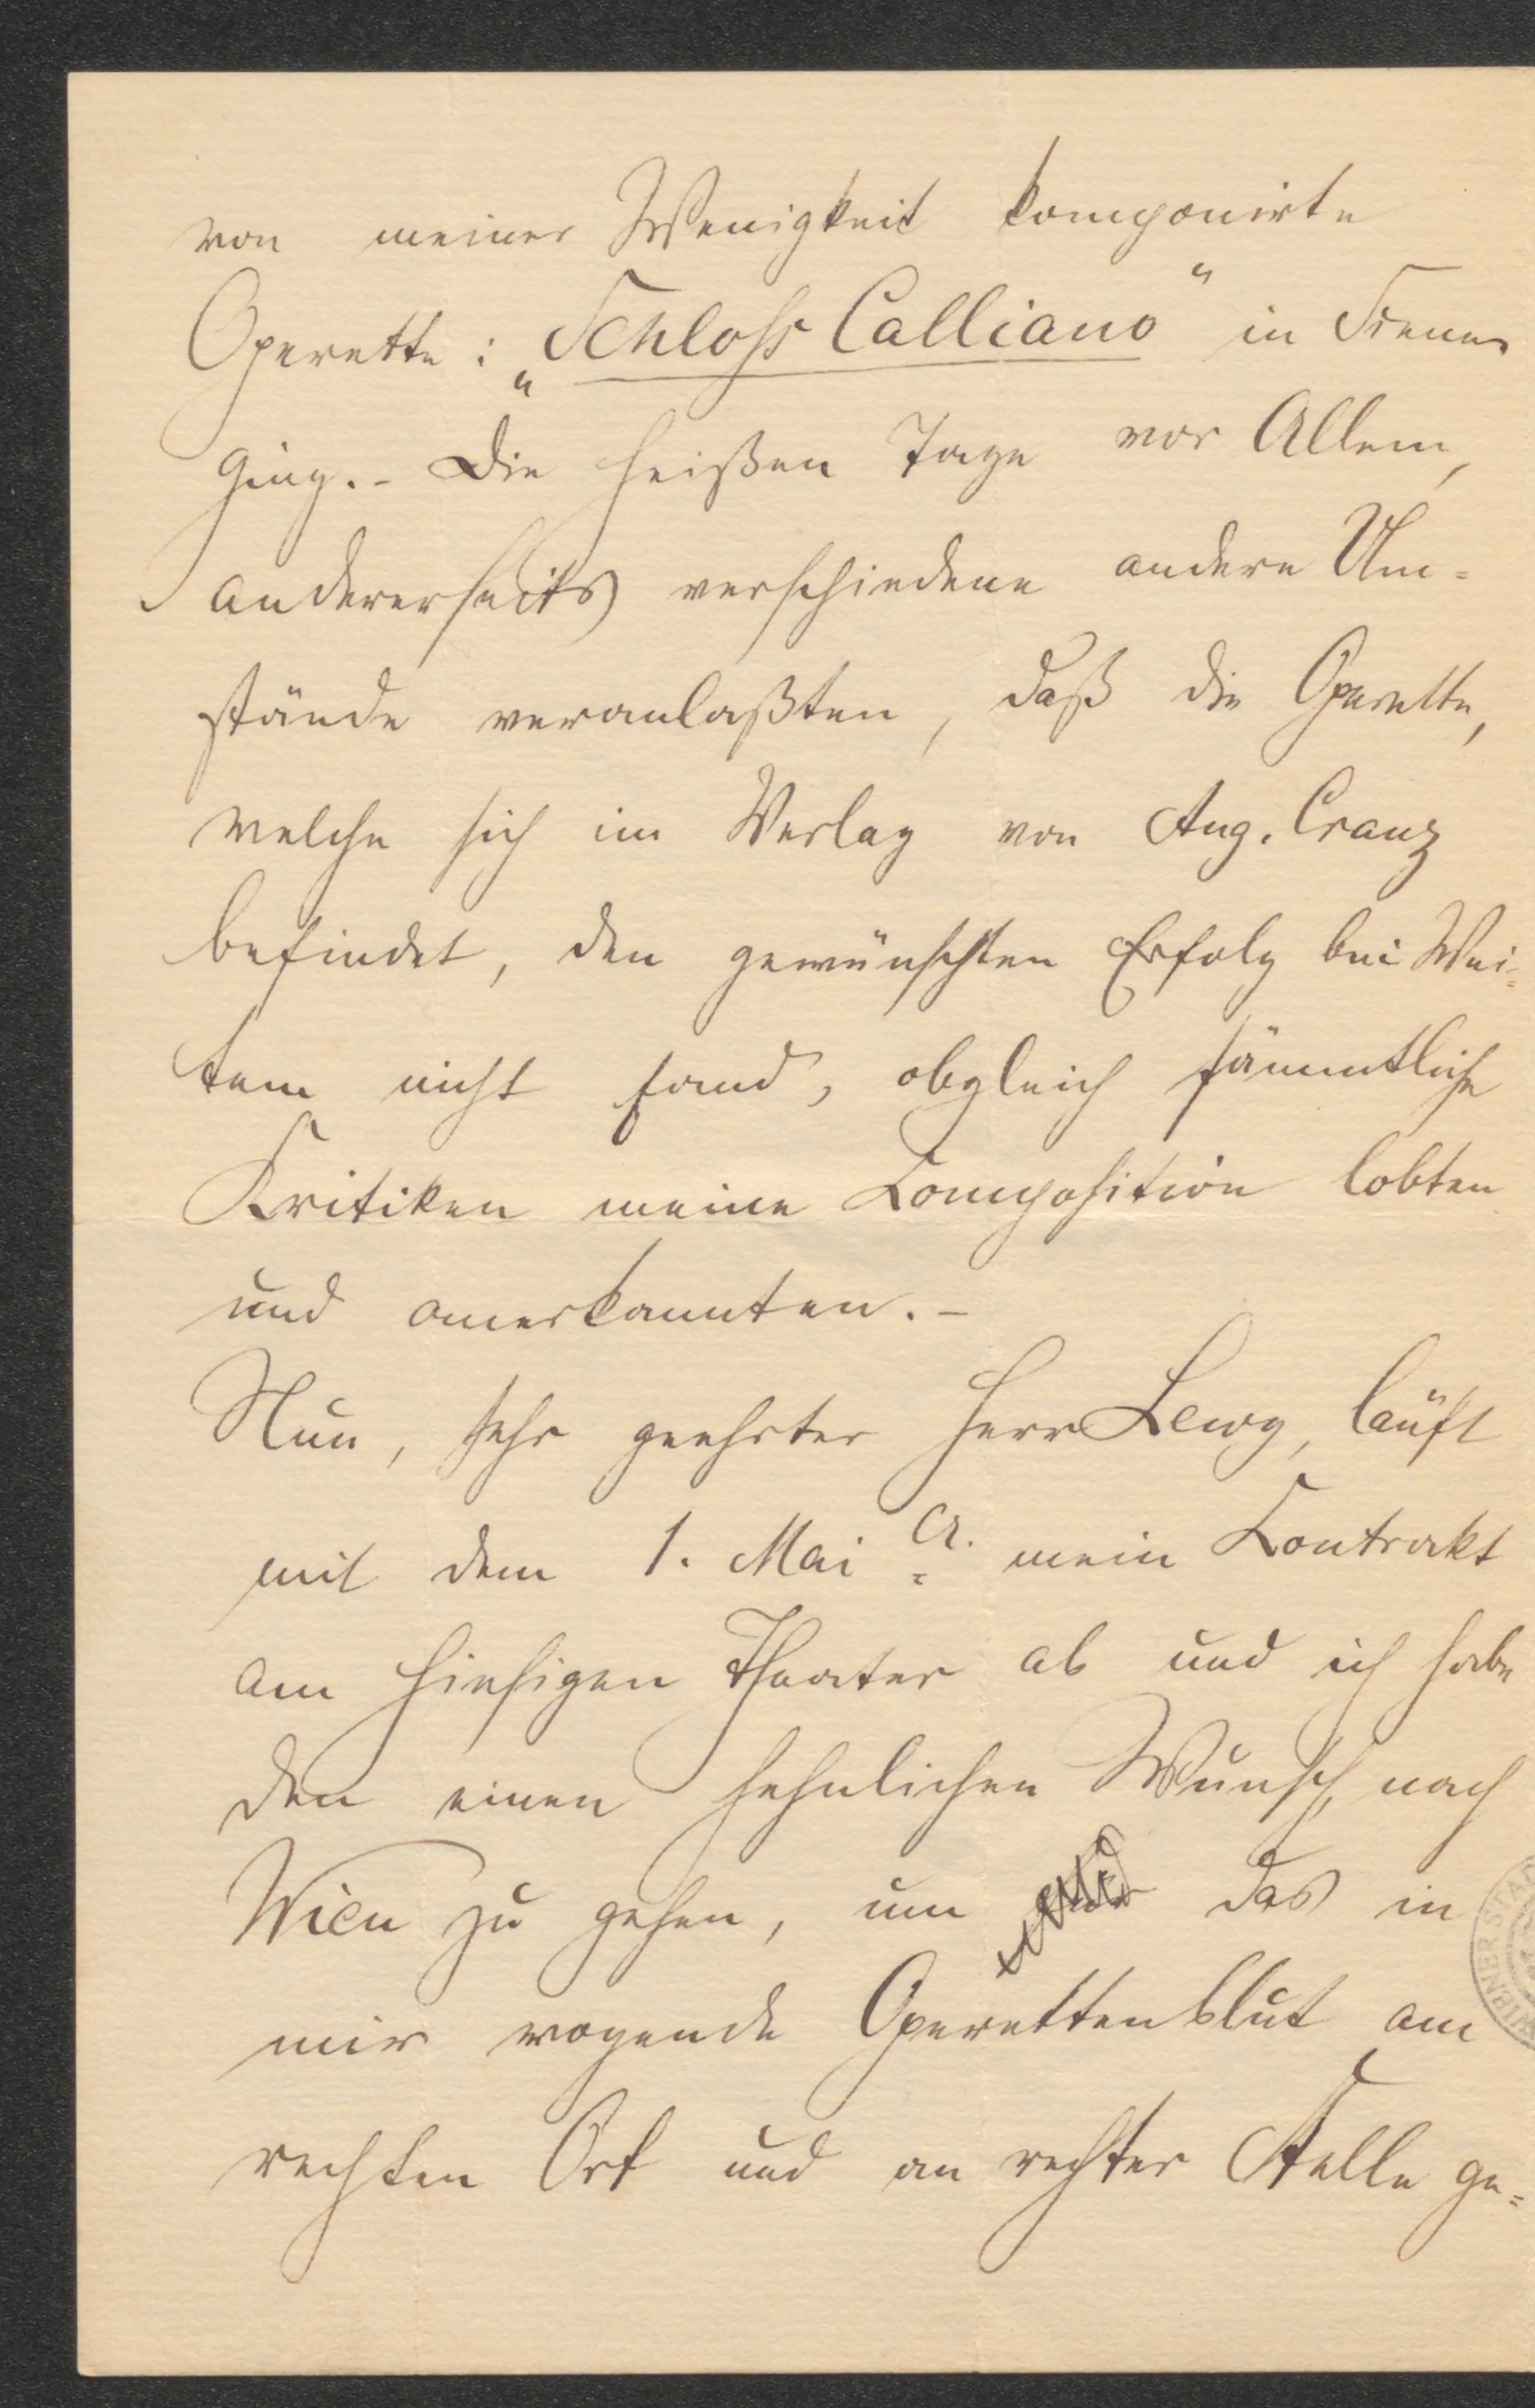 von meiner Wenigkeit komponirte
Operette: „Schloss Calliano" in Scene
ging. - Die heißen Tage vor Allem,
andererseits verschiedene andere Um=
stände veranlaßten, daß die Operette,
welche sich im Verlag von Aug. Cranz
befindet, den gewünschten Erfolg bei Wei=
tem nicht fand, obgleich sämmtliche
Kritiken meine Composition lobten
und anerkannten. -
Nun, sehr geehrter Herr Lewy, läuft
mit dem 1. Mai cr. mein Kontrakt
am hiesigen Theater ab und ich habe
den einen sehnlichen Wunsch, nach
Wien zu gehen, um das in
mir wogende Operettenblut am
rechten Ort und an rechter Stelle ge=
WIENER STAD